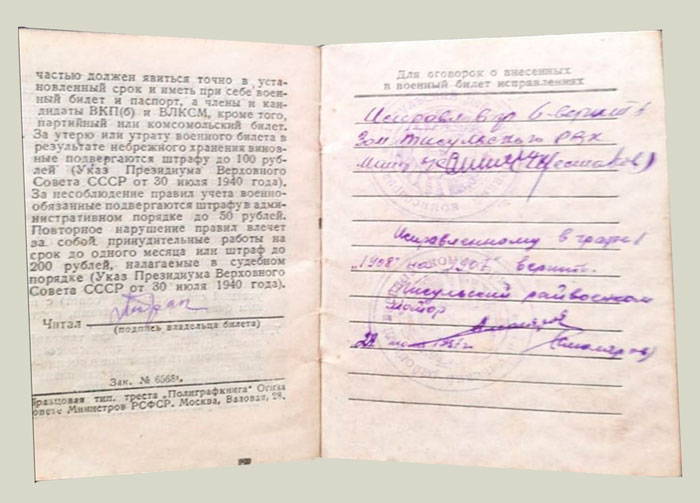 частью должен явиться точно в уста-
новленный срок и иметь при себе воен-
ный билет и паспорт, а члены и кан-
дидаты ВКП(б) и ВЛКСМ, кроме того,
партийный или комсомольский билет.
За утерю или утрату военного билета в
результате небрежного хранения винов-
ные подвергаются штрафу до 100 руб-
лей (Указ Президиума Верховного
Совета СССР от 30 июля 1940 года).
За несоблюдение правил учета военно-
обязанные подвергаются штрафу в ад-
министративном порядке до 50 рублей.
Повторное нарушение правил влечет
за собой принудительные работы на
срок до одного месяца или штраф до
200 рублей, налагаемые в судебном
порядке (Указ Президиума Верховного
Совета СССР от 30 июля 1940 года).
Читал
(подпись владельца билета)
Зак. № 6568
бразцовая тип. треста „Полиграфкнига" Огиза
овете Министров РСФСР. Москва, Валовая, 28.
Для оговорок о внесенных
в военный билет исправлениях
Тисульского РВК
Исправленному в графе 1
"1908" на "1907" верить.
Тисульский райвоенком
Майор
(Смоляров)